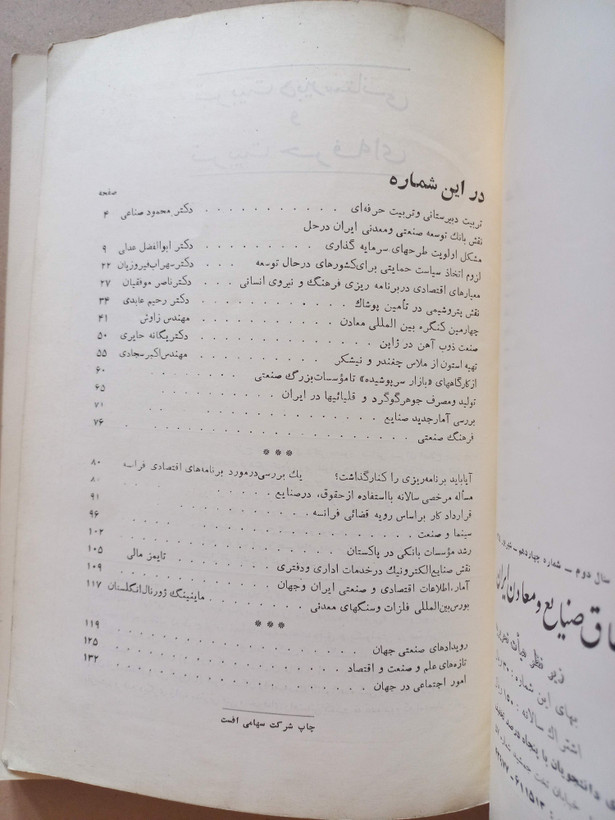 در این شماره
صفحه
تربیت دبیرستانی وتربیت حرفه‌ای . . . . . . . . . دکتر محمود صناعی ۴
نقش بانك توسعه صنعتی ومعدنی ایران درحل
مشکل اولویت طرحهای سرمایه گذاری . . . . . . . . دکتر ابوالفضل عدلی ۹
لزوم اتخاذ سیاست حمایتی برای‌کشورهای درحال توسعه دکترسهراب‌فیروزیان ۲۲
معیارهای اقتصادی دربرنامه ریزی فرهنگ و نیروی انسانی . دکترناصر موفقیان ۲۷
نقش پتروشیمی در تأمین پوشاك . . . . . . . . . دکتر رحیم عابدی ۳۴
چهارمین کنگره بین المللی معادن . . . . . . . . . مهندس زاوش ۴۱
صنعت ذوب آهن در ژاپن . . . . . . . . . دکتریگانه حایری ۵۰
تهیه استون از ملاس چغندر و نیشکر . . . . . . . . . مهندس‌اکبرسجادی ۵۵
ازکارگاههای «بازار سرپوشیده» تامؤسسات‌بزرگ صنعتی . . . . . . ۶۰
تولید ومصرف جوهرگوگرد و قلیائیها در ایران . . . . . . ۶۵
بررسی آمارجدید صنایع . . . . . . . . . ۷۱
فرهنگ صنعتی . . . . . . . . . ۷۶
* * *
آیاباید برنامه‌ریزی را کنارگذاشت؟ یك بررسی‌درمورد برنامه‌های اقتصادی فرانسه ۸۰
مسأله مرخصی سالانه بااستفاده ازحقوق، درصنایع . . . . .
قرارداد کار براساس رویه قضائی فرانسه . . . . . . ۹۱
سینما و صنعت . . . . . . . . . ۹۶
رشد مؤسسات بانکی در پاکستان . . . . . . . . . ۱۰۲
نقش صنایع‌الکترونیك درخدمات اداری ودفتری . . . تایمز مالی ۱۰۵
آمار، اطلاعات اقتصادی و صنعتی ایران وجهان . . . . . . ۱۰۹
بورس‌بین‌المللی فلزات وسنگهای معدنی . . . ماینینگ ژورنال‌انگلستان ۱۱۷
* * *
رویدادهای صنعتی جهان . . . . . . . . . ۱۱۹
تازه‌های علم و صنعت و اقتصاد . . . . . . . . . ۱۲۵
امور اجتماعی در جهان . . . . . . . . . ۱۳۲
چاپ شرکت سهامی افست
سال دوم – شماره چهاردهم –
صنایع ومعادن ایران
زیر نظر هیأت
بهای این شماره :
اشتراك سالانه :